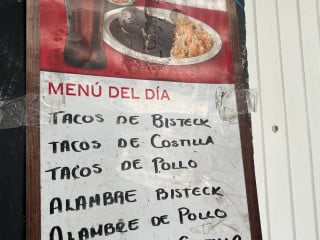 MENÚ DEL DÍA
TACOS DE BISTECK
TACOS DE COSTILLA
TACOS DE POLLO
ALAMBRE BISTECK
ALAMBRE DE POLLO